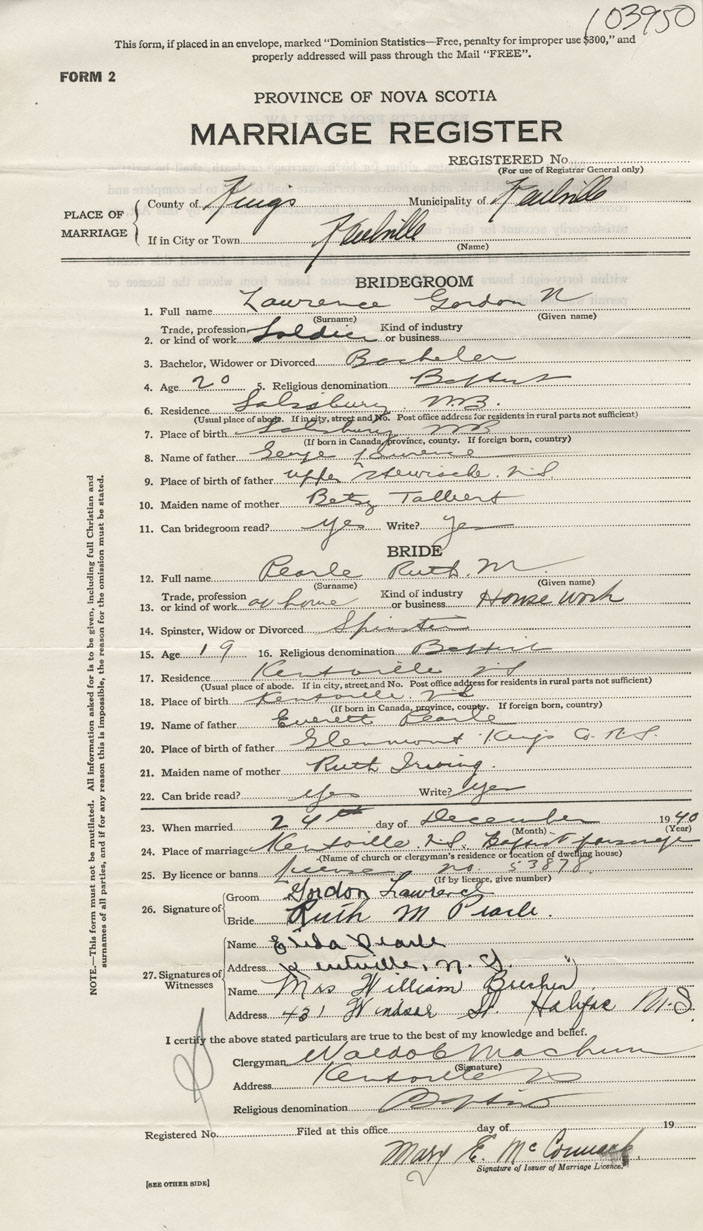 103950
This form, if placed in an envelope, marked "Dominion Statistics—Free, penalty for improper use $300," and
properly addressed will pass through the Mail "FREE".
FORM 2
PROVINCE OF NOVA SCOTIA
MARRIAGE REGISTER
REGISTERED No.
(For use of Registrar General only)
PLACE OF MARRIAGE
County of Kings Municipality of Kentville
If in City or Town Kentville
(Name)
BRIDEGROOM
1. Full name Lawrence Gordon N
(Surname) (Given name)
2. Trade, profession or kind of work Soldier Kind of industry or business
3. Bachelor, Widower or Divorced Bachelor
4. Age 20 5. Religious denomination Baptist
6. Residence Salisbury N.B.
(Usual place of abode. If in city, street and No. Post office address for residents in rural parts not sufficient)
7. Place of birth Salisbury NB
(If born in Canada, province, county. If foreign born, country)
8. Name of father George Lawrence
9. Place of birth of father Upper N.S.
10. Maiden name of mother Betsy Talbert
11. Can bridegroom read? yes Write? yes
BRIDE
12. Full name Pearle Ruth. M.
(Surname) (Given name)
13. Trade, profession or kind of work at home Kind of industry or business House Work
14. Spinster, Widow or Divorced Spinster
15. Age 19 16. Religious denomination Baptist
17. Residence Kentville NS
(Usual place of abode. If in city, street and No. Post office address for residents in rural parts not sufficient)
18. Place of birth Kentville NS
(If born in Canada, province, county. If foreign born, country)
19. Name of father Everett Pearle
20. Place of birth of father Glenmont Kings Co. N.S.
21. Maiden name of mother Ruth Irving.
22. Can bride read? yes Write? yes
23. When married 24th day of December 1940
(Month) (Year)
24. Place of marriage Kentville N.S. Baptist parsonage
(Name of church or clergyman's residence or location of dwelling house)
25. By licence or banns License No. 53878
(If by licence, give number)
26. Signature of
Groom Gordon Lawrence
Bride Ruth M Pearle.
27. Signatures of Witnesses
Name Pearle
Address Kentville, N.S.
Name Mrs William
Address 431 Windsor St. Halifax N.S.
I certify the above stated particulars are true to the best of my knowledge and belief.
Clergyman Waldo C Machum
(Signature)
Address Kentville NS
Religious denomination Baptist
Registered No. Filed at this office day of 19
Mary E. McCormack
Signature of Issuer of Marriage Licence.
[SEE OTHER SIDE]
NOTE.—This form must not be mutilated. All information asked for is to be given, including full Christian and
surnames of all parties, and if for any reason this is impossible, the reason for the omission must be stated.